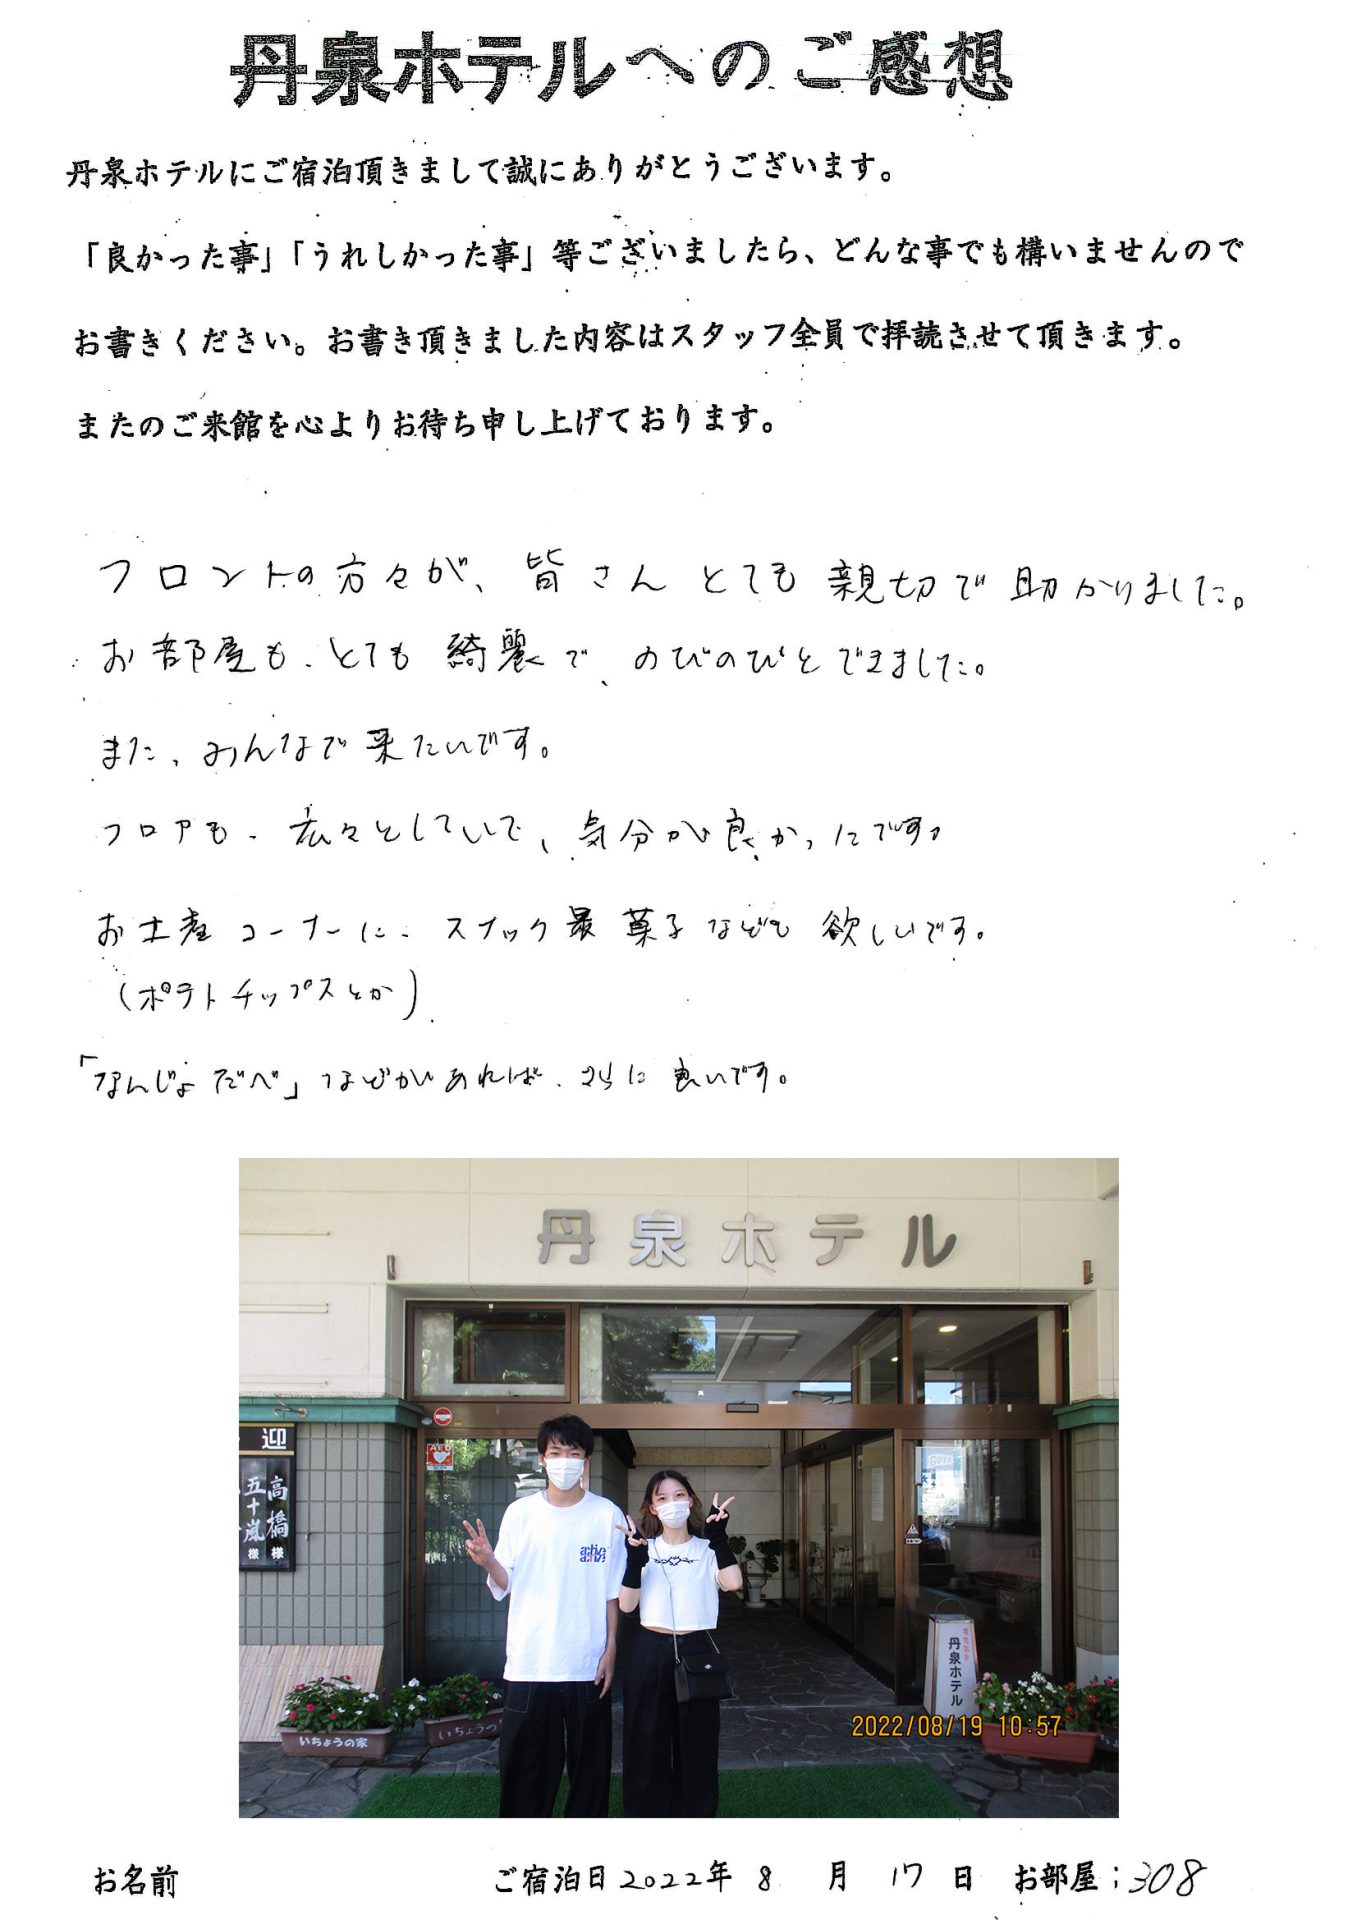 丹泉ホテルへのご感想
丹泉ホテルにご宿泊頂きまして誠にありがとうございます。
「良かった事」「うれしかった事」等ございましたら、どんな事でも構いませんので
お書きください。お書き頂きました内容はスタッフ全員で拝読させて頂きます。
またのご来館を心よりお待ち申し上げております。
フロントの方々が、皆さんとても親切で助かりました。
お部屋も、とても綺麗で、のびのびとできました。
また、みんなで来たいです。
フロアも、広々としていて、気分が良かったです。
お土産コーナーに、スナック菓子なども欲しいです。
(ポテトチップスとか)
「なんじょだべ」などがあれば、さらに良いです。
丹泉ホテル
迎
高橋様
五十嵐様
AED
GoTo
active
丹泉ホテル
いちょうの家
いちょうの
2022/08/19 10:57
お名前 ご宿泊日2022年 8 月 17 日 お部屋;308